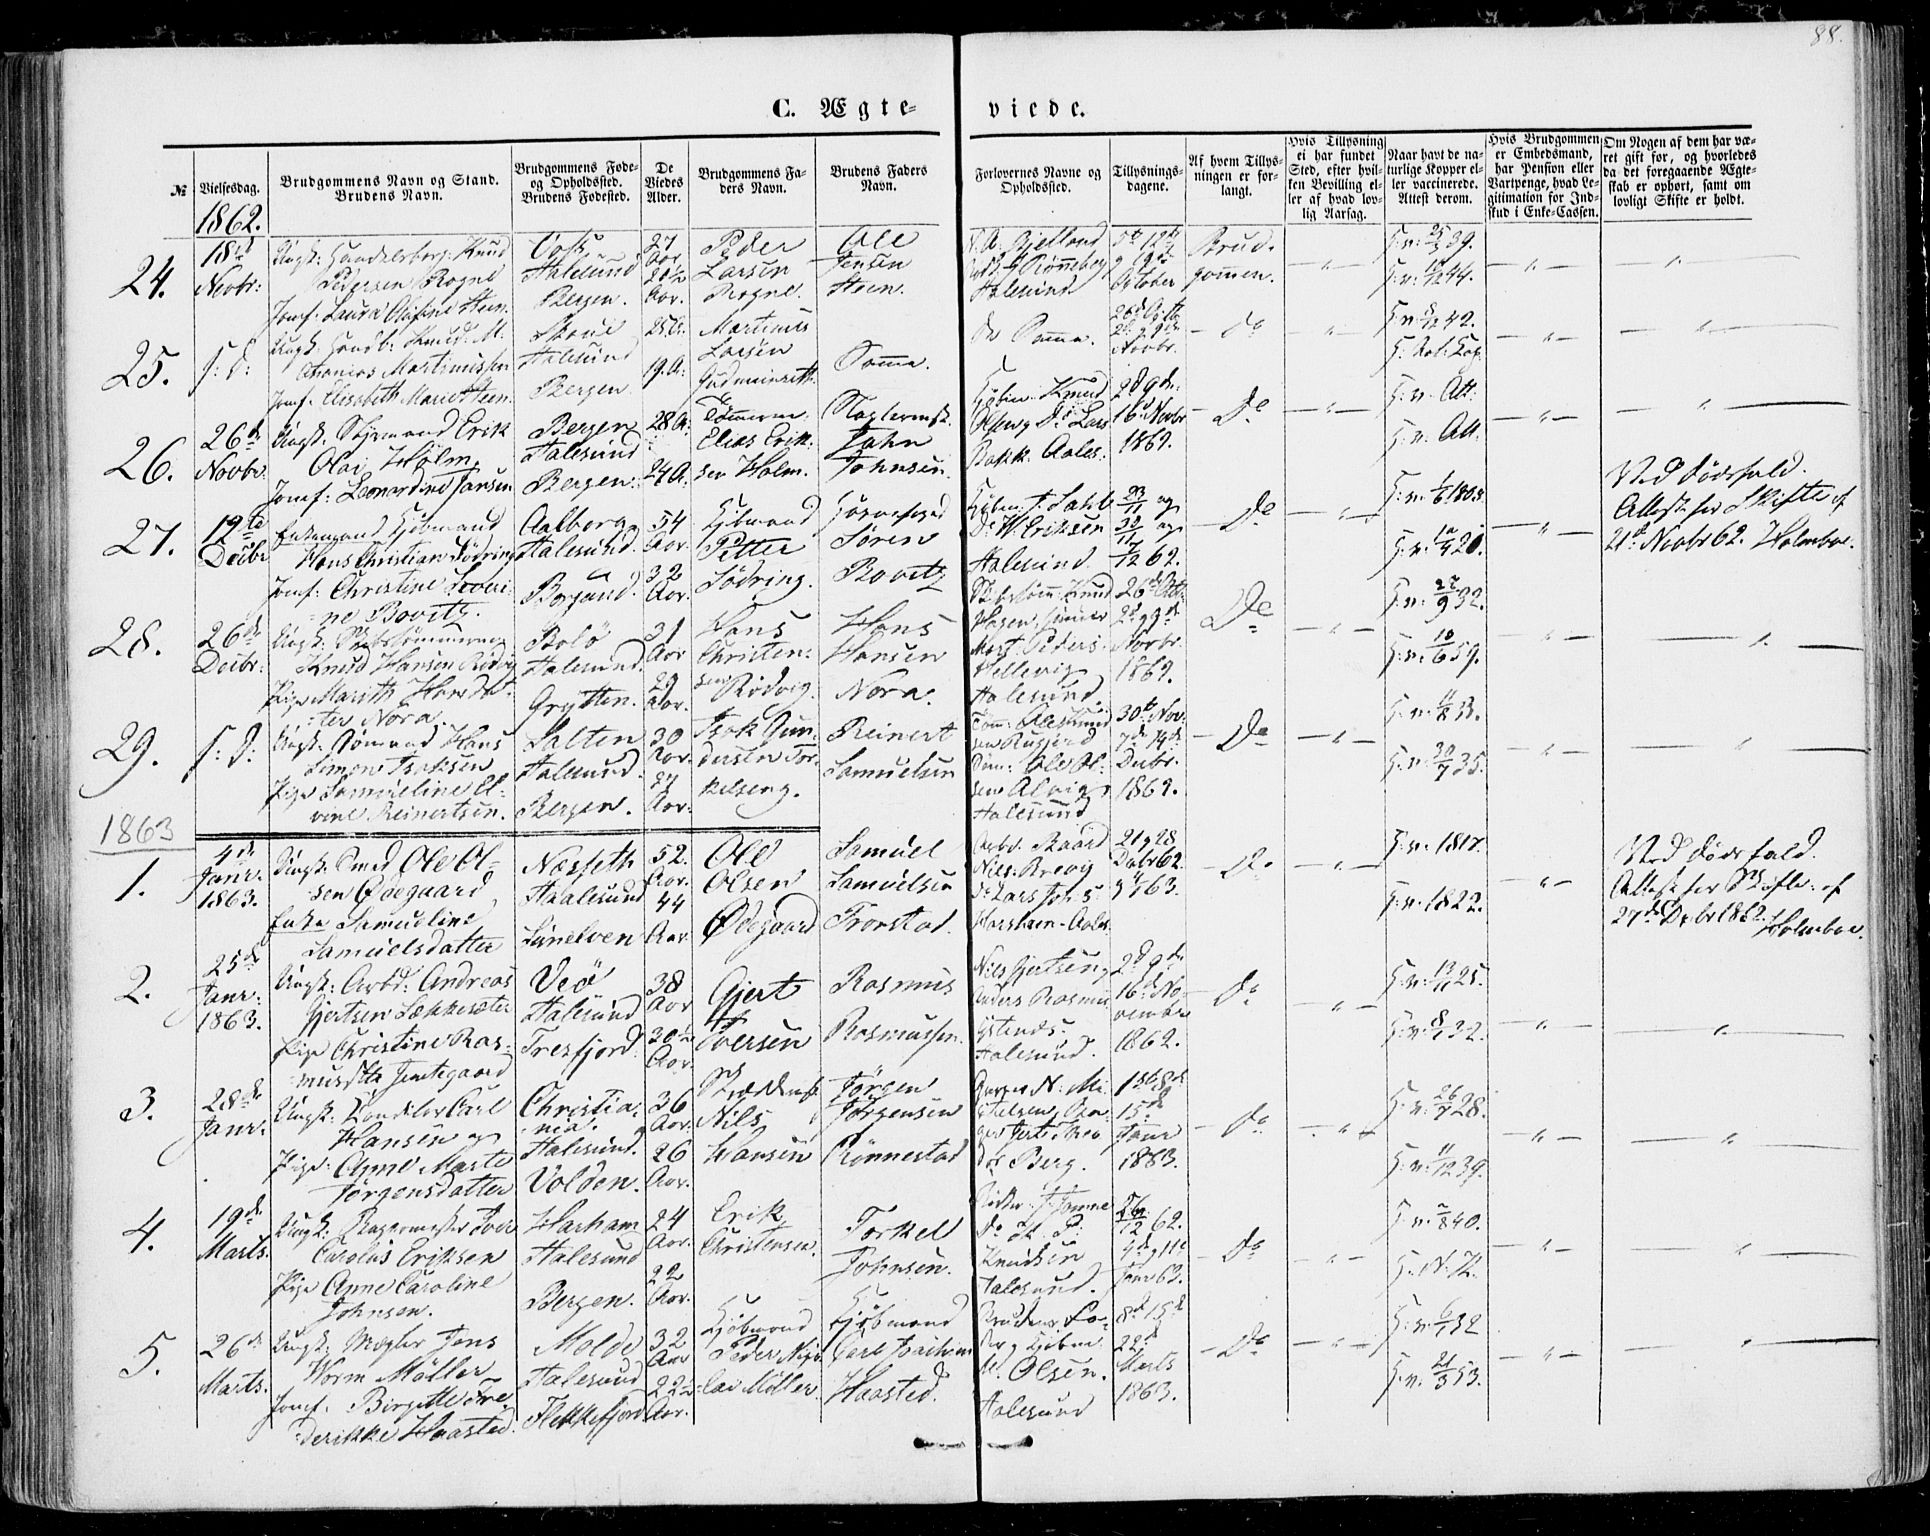 88.
C. Ægteviede.
№
Vielsesdag.
Brudgommens Navn og Stand.
Brudens Navn.
Brudgommens Føde-
og Opholdssted.
Brudens Fødested.
De
Viedes
Alder.
Brudgommens Fa-
ders Navn.
Brudens Faders
Navn.
Forlovernes Navne og
Opholdssted.
Tillysnings-
dagene.
Af hvem Tillys-
ningen er for-
langt.
Hvis Tillysning
ei har fundet
Sted, efter hvil-
ken Bevilling el-
ler af hvad lov-
lig Aarsag.
Naar havt de na-
turlige Kopper el-
ler vaccinerede.
Attest derom.
Hvis Brudgommen
er Embedsmand,
har Pension eller
Vartpenge, hvad Le-
gitimation for Ind-
skud i Enke-Cassen.
Om Nogen af dem har væ-
ret gift før, og hvorledes
da det foregaaende Ægte-
skab er ophørt, samt om
lovligt Skifte er holdt.
1862.
24.
18de
Novbr:
Ungk: Handelsborg: Knud
Pedersen Rogne
Jomf: Laura Olufine Steen.
Voss
Aalesund
Bergen.
27
Aar
20½
Aar.
Peder
Larsen
Rogne.
Ole
Jensen
Steen.
A. Bjelland
og Rønneberg
Aalesund
5te 12te
og 19de
October
Brud-
gommen.
G: v: 25/3 39.
25.
s: d:
Ungk: Handb: Knud M.
Martinussen
Jomf: Elisabeth Marie Steen.
Aalesund
Bergen
25 A:
19 A:
Martinus
Larsen
Samme.
De Samme.
26de Octb
2de og 9de
Novbr.
do
26.
26de
Novbr.
Ungk: Styrmand Erik
Olai Holm
Jomf: Leonardine Jansen
Bergen
Aalesund
Bergen.
28 A:
24 A:
Tømmerm
Elias Erik-
sen Holm.
Jahn
Johnsen.
Kjøbm: Knud
Do Lars
Bakk. Aales.
2de 9de
16de Novbr
1862.
Do
G: v: Att:
G: v: Att.
27.
12te
Decbr
Enkemand Kjøbmand
Hans Christian Södring
Jomf: Christine Severi-
ne Bovitz.
Aalborg
Aalesund.
Borgund.
54
Aar.
32
Aar.
Kjøbmand
Petter
Södring.
Søren
Bovitz
Do W. Eriksen
Aalesund
23/11 og
30/11 og
7/12 62.
Do
G: v: 1/6 1808.
Ved dødsfald.
Attest for Skifte af
21de Novbr 62. Holmboe.
28.
26de
Decbr:
Ungk: Skibstømmermd
Knud Hansen Rødvig
Pige Marith Hansdat-
ter Nora.
Bolsø
Aalesund.
Grytten.
31
Aar
29
Aar.
Hans
Christen-
sen Rødvig.
Hans
Hansen
Nora.
Skibstømm: Knud
Mart. Peders:
Hellevig
Aalesund.
26de Octb
2de 9de
Novbr.
1862.
Do
G: v: 27/9 32.
G: v: 10/6 59.
29.
s: d:
Ungk: Sömand Hans
Simon Isaksen
Pige Samueline El-
vine Reinertsen.
Salten
Aalesund.
Bergen.
30
Aar.
27
Aar.
Isak Gun-
dersen Tor-
kelseng.
Reinert
Samuelsen
Aalesund
30te Nov.
7de 14de
Decbr.
1862.
Do
G: v: 30/7 35.
1863
1.
4de
Janr.
1863.
Ungk: Smed Ole Ol-
sen Ødegaard
Enke Samueline
Samuelsdatter
Næsseth
Aalesund
Sunelven
52.
Aar.
44
Aar.
Ole
Olsen
Ødegaard
Samuel
Samuelsen
Tronstad.
Arbd. Baard
Nils: Brevig
Do Lars Joh s:
Harsheim Aales.
21 og 28
Decbr 62.
og 4/1 63.
Do
G: v: 1817.
G: v: 1822.
Ved dødsfald.
Attest for Skifte: af
27de Decbr 1862. Holmboe.
2.
25de
Janr:
1863.
Ungk: Arbd: Andreas
Gjertsen Løkkesæter
Pige Christine Ras-
musdtr Tomtegaard
Veö
Aalesund
Tresfjord.
38
Aar
30½
Aar.
Gjert
Iversen
Rasmus
Rasmussen.
Nils Gjertsen og
Anders Rasmus
Aalesund.
2de 9de
16de No-
vember
1862.
do
G: v: 13/11 25.
3.
28de
Janr.
Ungk: Handelsb Carl
Hansen og
Pige: Anne Marte
Jørgensdatter
Christia-
nia.
Aalesund.
Volden.
36
Aar.
26
Aar.
Nils
Hansen
Jørgen
Jørgensen
Rönnestad
Berg.
1ste 8de
15de
Janr
1863.
do
G: v: 26/7 28.
G: v: 11/12 39.
4.
19de
Marts.
Ungk: Bagermester Iver
Carolus Eriksen
Pige Anne Caroline
Johnsen.
Harham
Aalesund
Bergen.
24
Aar.
22
Aar.
Erik
Christensen.
Torkel
Johnsen.
Knudsen
Aalesund.
26/12 62.
4de og 11te
Janr 63.
Do
G: v: 2/8 40.
G: N. K.
5.
26de
Marts.
Ungk: Mægler Jens
Worm Möller
Jomf. Birgitte Fre-
derikke Haasted.
Molde
Aalesund
Flekkefjord
32
Aar
22½
Aar.
Kjøbmand
Peder Nigo-
lai Möller.
Kjøbmand
Carl Joachim
Haasted.
Brudens Fa-
der og Kjøbm.
M. Olsen.
Aalesund
8de 15de
22de
Marts
1863.
Do
G: v: 6/1 32
G: v: 21/3 53.